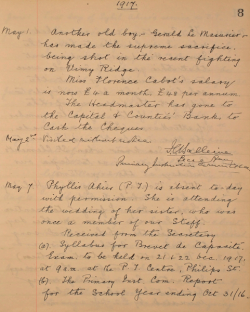 1917.
8
May 1. Another old boy - Gerald Le Masurier -
has made the supreme sacrifice,
being shot in the recent fighting
on Vimy Ridge.
Miss Florence Cabot's salary
is now £4 a month, £48 per annum.
The Headmaster has gone to
the Capital & Counties' Bank to
Cash the Cheques.
May 2nd Visited
May 7. Phyllis Ahier (P.T.) is absent to-day
with permission. She is attending
the wedding of her sister, who was
once a member of our Staff.
Received from the Secretary
(a). Syllabus for Brevet de Capacité
Exam. to be held on 21 & 22 Dec. 1917,
at 9 a.m. at the P.T. Centre, Philips St.
(b). The Primary Inst. Com. Report
for the School Year ending Oct 31/16.